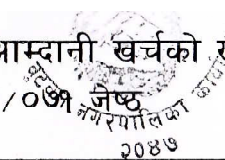 आम्दानी खर्चको
/०७१ जेष्ठ
नगरपालिका
२०४७